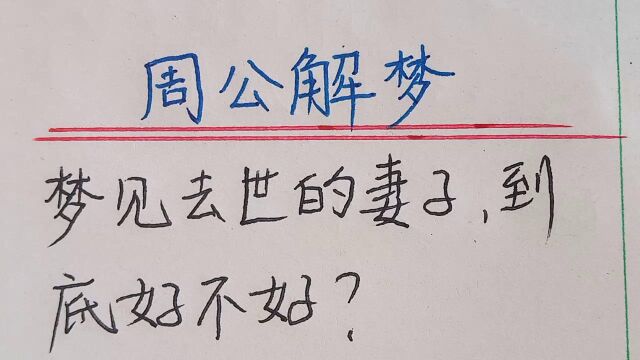 周公解梦
梦见去世的妻子,到
底好不好?